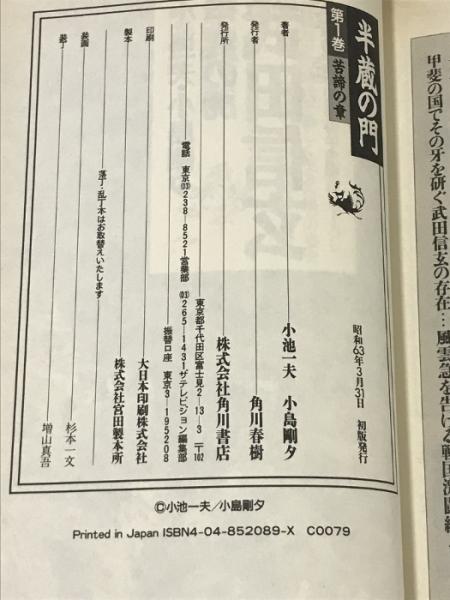 甲斐の国でその牙を研ぐ武田信玄の存在…風雲急を告げる戦国激闘編
半蔵の門
第1巻 苦諦の章
昭和63年3月31日 初版発行
著者 小池一夫 小島剛夕
発行者 角川春樹
発行所 株式会社角川書店
東京都千代田区富士見2-13-3 〒102
電話 東京(03)238-8521営業部 (03)265-1431ザテレビジョン編集部
振替口座 東京3-195208
印刷 大日本印刷株式会社
製本 株式会社宮田製本所
落丁・乱丁本はお取替えいたします
装画 杉本一文
装丁 増山真吾
©小池一夫/小島剛夕
Printed in Japan ISBN4-04-852089-X C0079